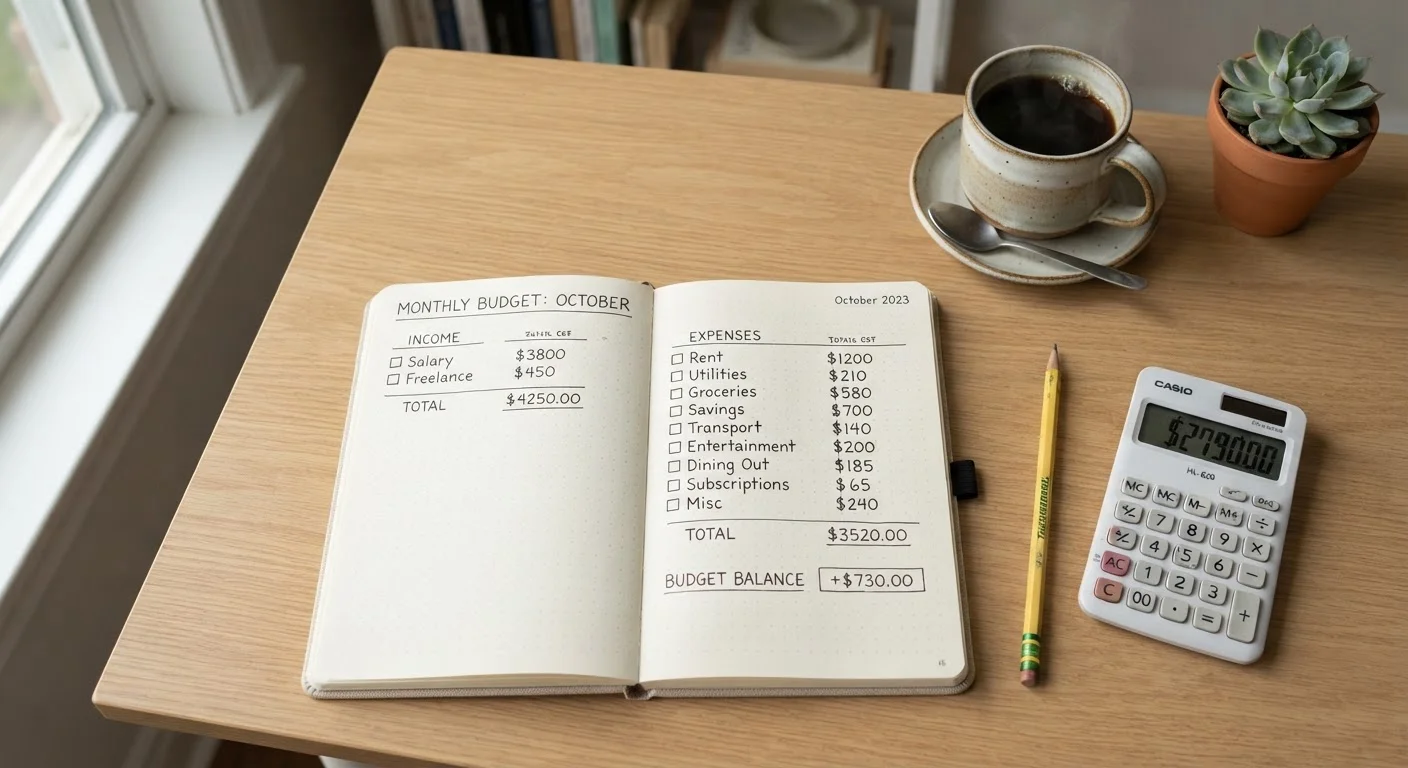 MONTHLY BUDGET: OCTOBER
INCOME
☐ Salary $3800
☐ Freelance $450
TOTAL $4250.00
October 2023
EXPENSES
☐ Rent $1200
☐ Utilities $210
☐ Groceries $580
☐ Savings $700
☐ Transport $140
☐ Entertainment $200
☐ Dining Out $185
☐ Subscriptions $65
☐ Misc $240
TOTAL $3520.00
BUDGET BALANCE +$730.00
CASIO
MC MC M-
7 8 9 ÷
4 5 6 ×
AC 1 2 3 −
C 00 · = +